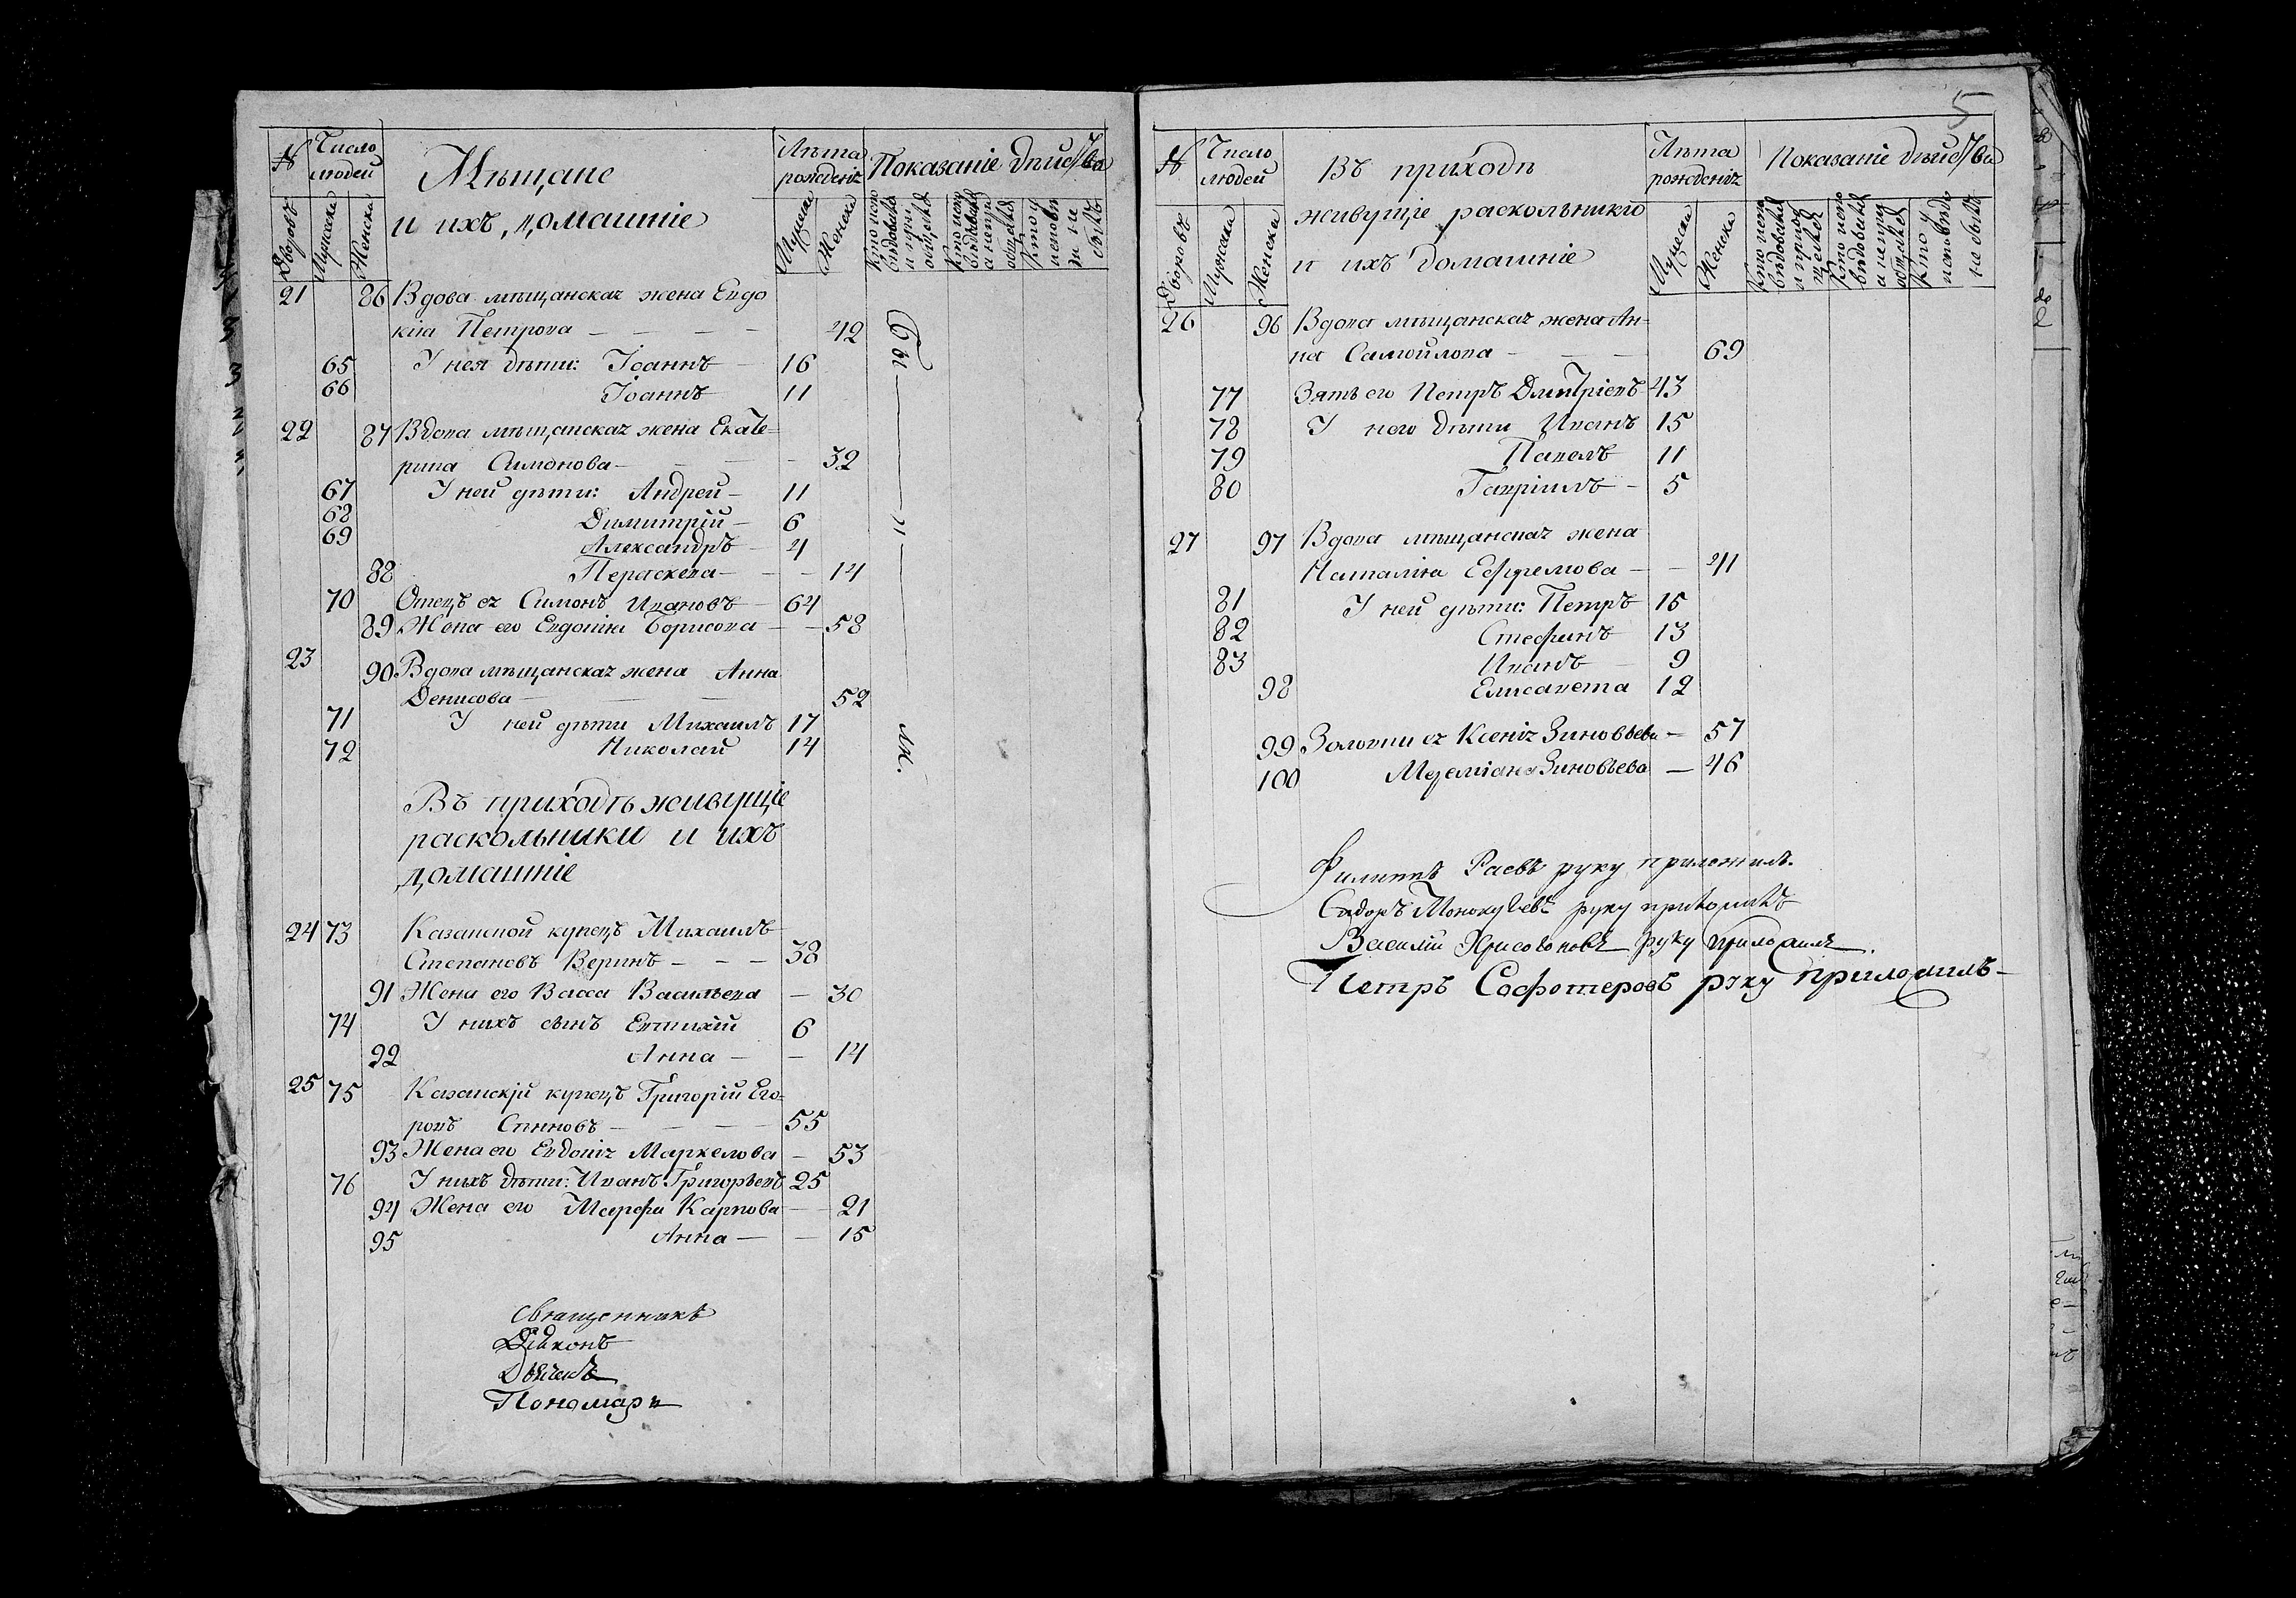 № Число людей
Мѣщане
и ихъ домашніе
Лѣта рожденія
Показаніе дѣйства
Дворовъ Мужеска Женска
Мужеска Женска
21 86 Вдова мѣщанская жена Евдо
кія Петрова — — — — 42
65 У нея дѣти: Іоаннъ — 16
66 Іоаннъ 11
22 87 Вдова мѣщанская жена Екате-
рина Симонова — — — — 32
67 У ней дѣти: Андрей — 11
68 Димитрій — 6
69 Александръ — 4
88 Параскева — — — 14
70 Отецъ ея Симонъ Ивановъ — 64
89 Жена его Евдокія Борисова — — 58
23 90 Вдова мѣщанская жена Анна
Денисова — — — — 52
71 У ней дѣти Михаилъ 17
72 Николай 14
Бы — и — ли.
Въ приходѣ живущіе
раскольники и ихъ
домашніе
24 73 Казанской купецъ Михаилъ
Степановъ Веринъ — — — 38
91 Жена его Васса Васильева — 30
74 У нихъ сынъ Евтихій 6
92 Анна — — 14
25 75 Казанскій купецъ Григорій Его-
ровъ — — — — 55
93 Жена его Евдокія Маркелова — 53
76 У нихъ дѣти: Иванъ Григорьевъ 25
94 Жена его Марфа Карпова — — 21
95 Анна — — 15
Священникъ
Діаконъ
Дьячекъ
Пономарь
5
№ Число людей
Въ приходѣ
живущіе раскольники
и ихъ домашніе
Лѣта рожденія
Показаніе дѣйства
Дворовъ Мужеска Женска
Мужеска Женска
26 96 Вдова мѣщанская жена Ан-
на Самойлова — — — 69
77 Зять его Петръ Дмитріевъ 43
78 У него дѣти Иванъ 15
79 Павелъ 11
80 Гавріилъ — 5
27 97 Вдова мѣщанская жена
Наталія Ефремова — — 41
81 У ней дѣти: Петръ 15
82 Стефанъ 13
83 Иванъ — 9
98 Елисавета 12
99 Золовки ея Ксенія Зиновьева — 57
100 Зиновьева — 46
Филиппъ Раевъ руку приложилъ.
Сидоръ руку приложилъ
Василій руку приложилъ.
Петръ руку приложилъ —